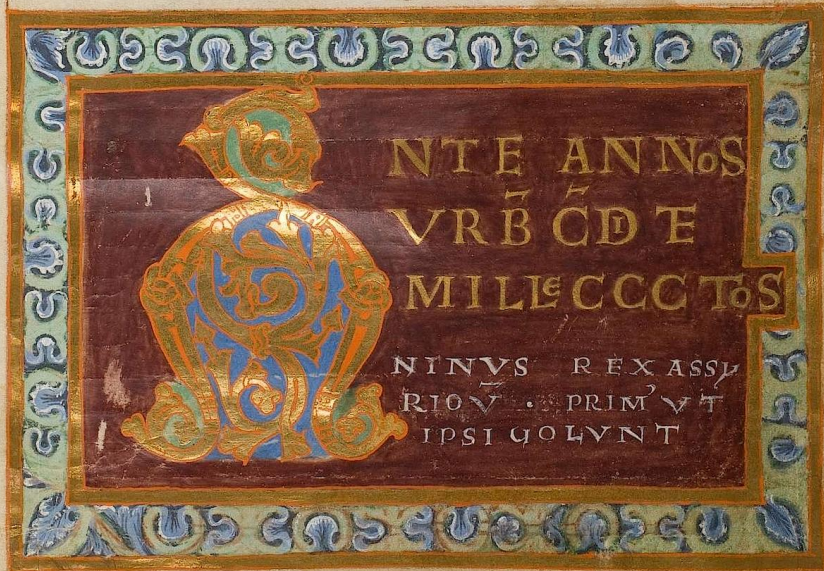 ANTE ANNOS
VRB̄ C̄DITE
MILLE CCCTOS
NINVS REX ASSY
RIOV̄ · PRIM' VT
IPSI UOLVNT